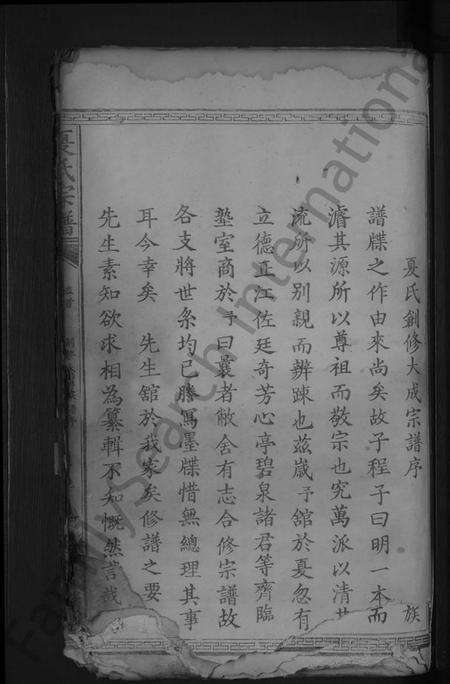 夏氏創修大成宗譜序
族
譜牒之作由來尚矣故子程子曰明一本而
濬其源所以尊祖而敬宗也究萬派以清其
流所以別親而辨踈也茲歲予舘於夏忽有
立德正江佐廷奇芳心亭碧泉諸君等齊臨
塾室商於予曰曩者敝舍有志合修宗譜故
各支將世系均已謄寫墨牒惜無總理其事
耳今幸矣 先生舘於我家矣修譜之要
先生素知欲求相為纂輯不知慨然
夏氏宗譜
FamilySearch International